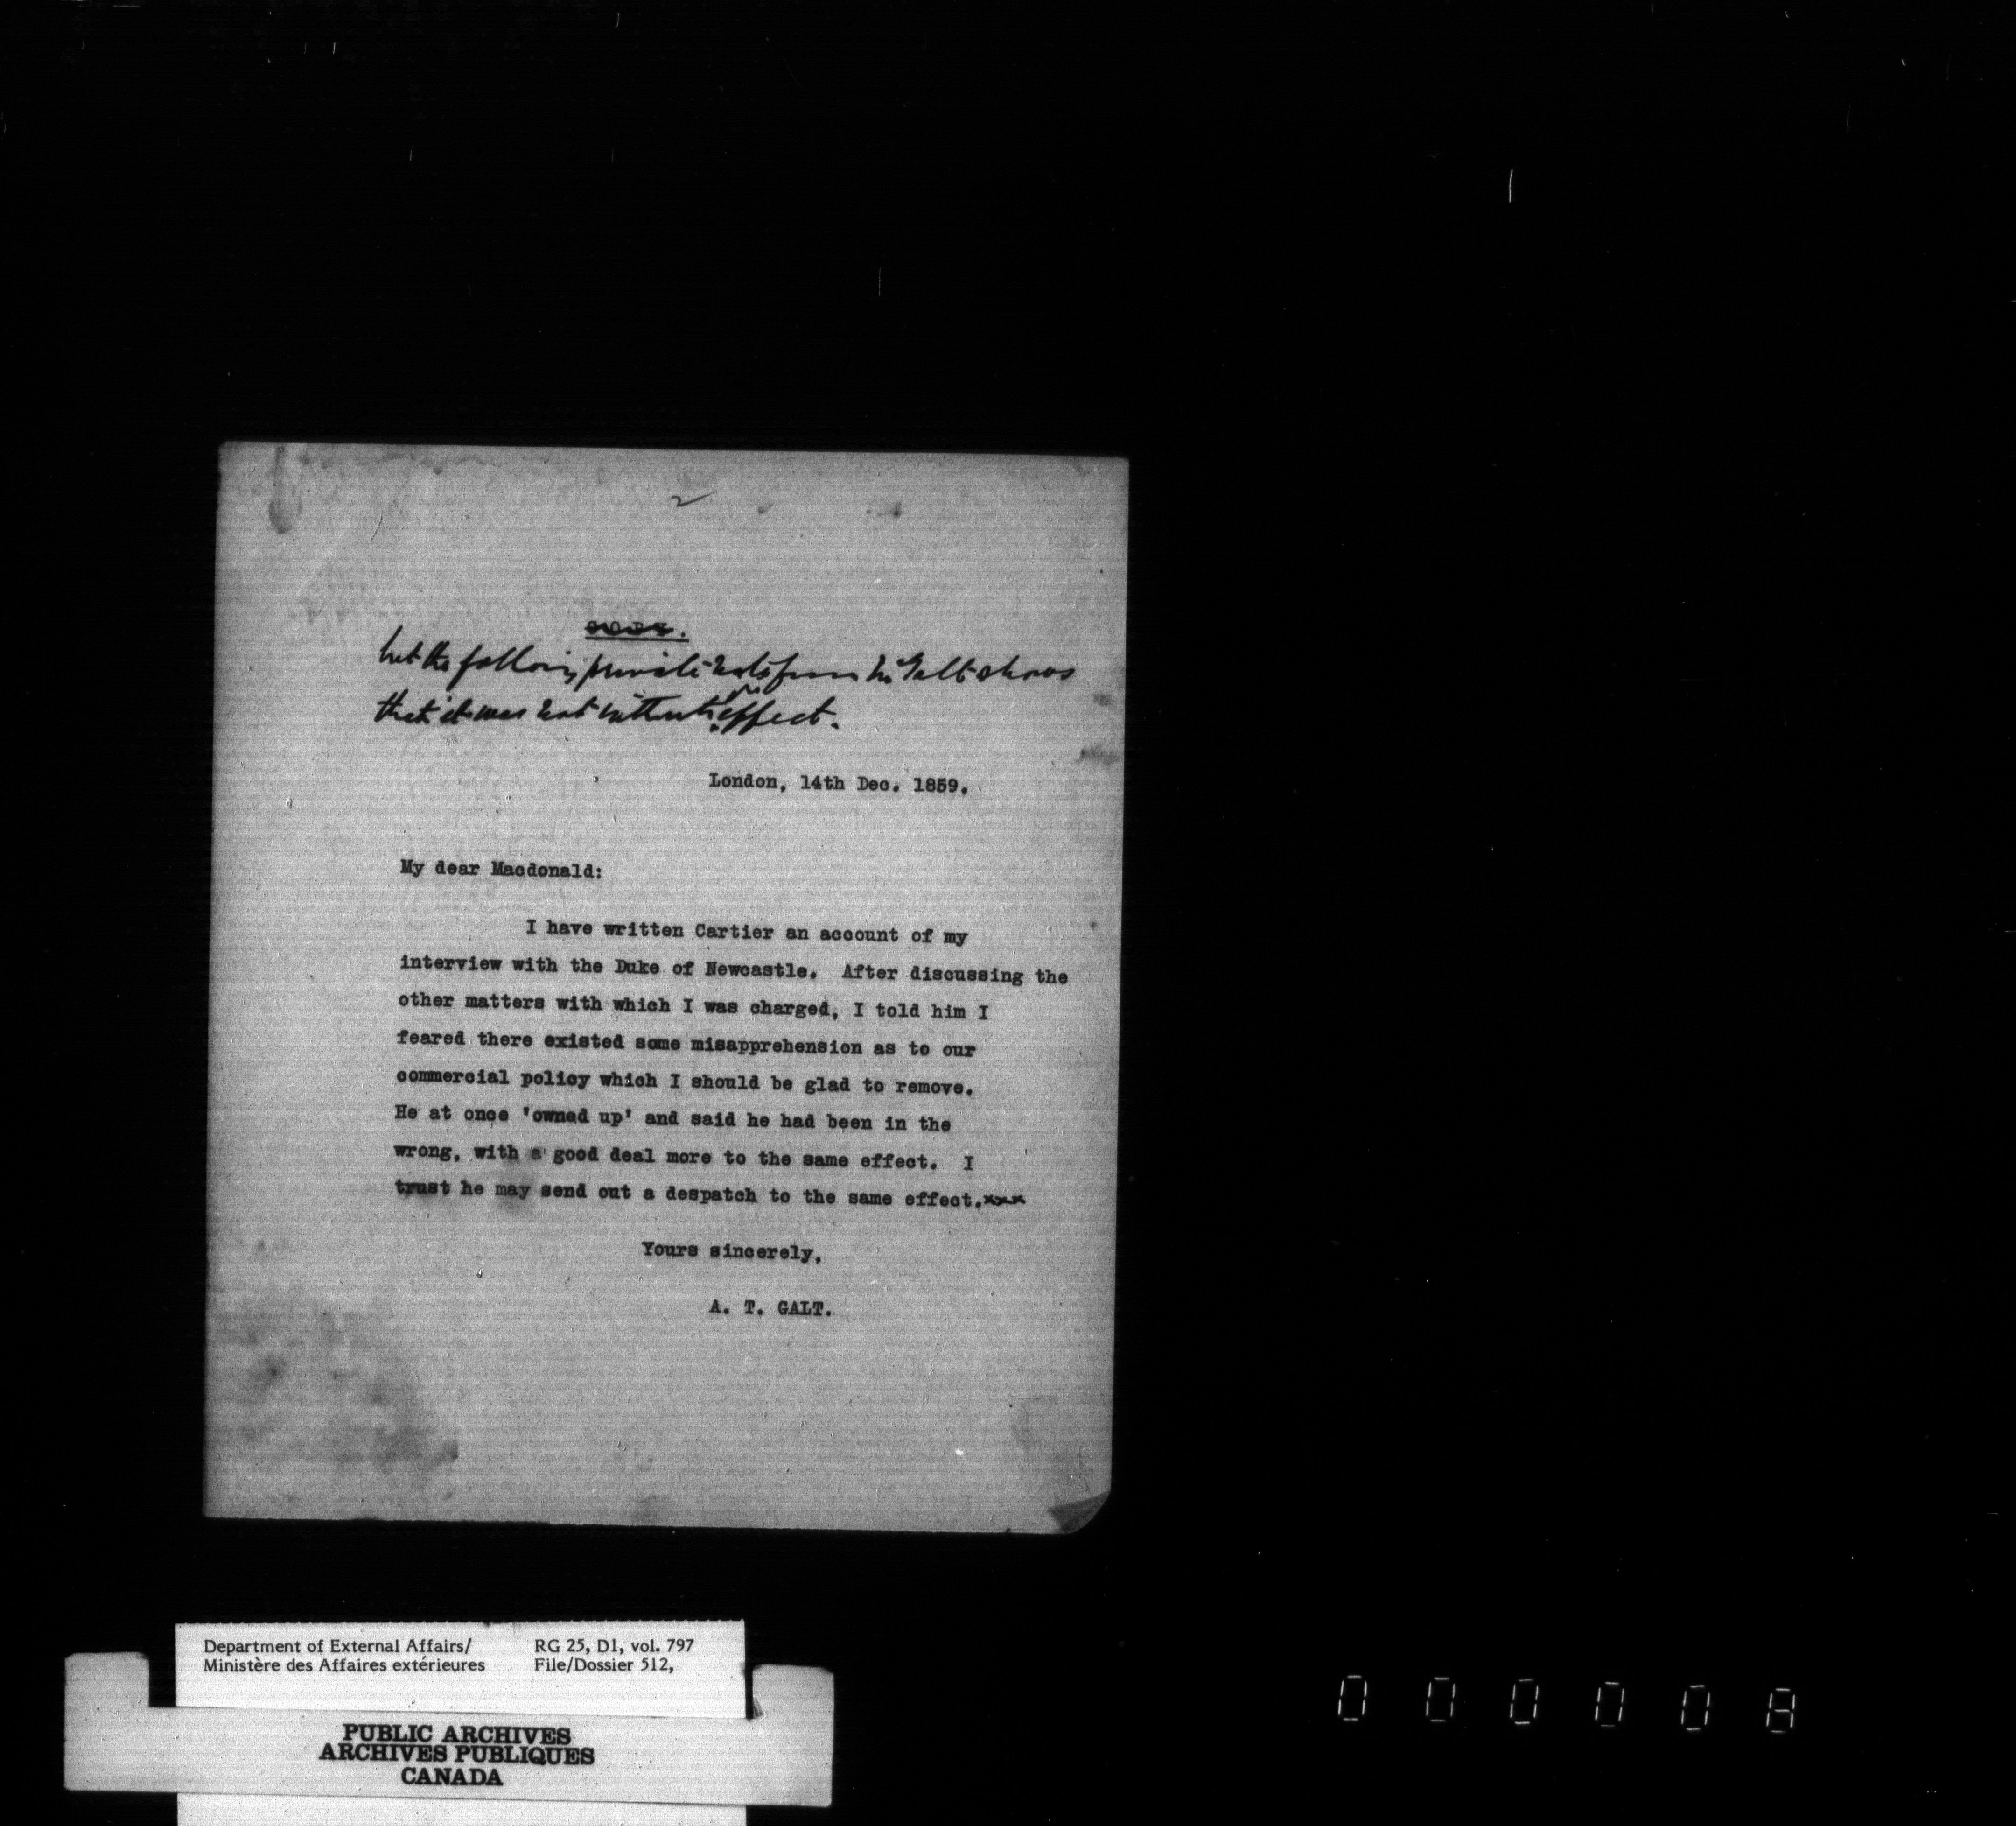 2
but the following private note from Mr Galt shows
that it was not without effect.
London, 14th Dec. 1859.
My dear Macdonald:
I have written Cartier an account of my
interview with the Duke of Newcastle. After discussing the
other matters with which I was charged, I told him I
feared there existed some misapprehension as to our
commercial policy which I should be glad to remove.
He at once 'owned up' and said he had been in the
wrong, with a good deal more to the same effect. I
trust he may send out a despatch to the same effect.xxx
Yours sincerely,
A. T. GALT.
Department of External Affairs/ RG 25, D1, vol. 797
Ministère des Affaires extérieures File/Dossier 512,
PUBLIC ARCHIVES
ARCHIVES PUBLIQUES
CANADA
000008